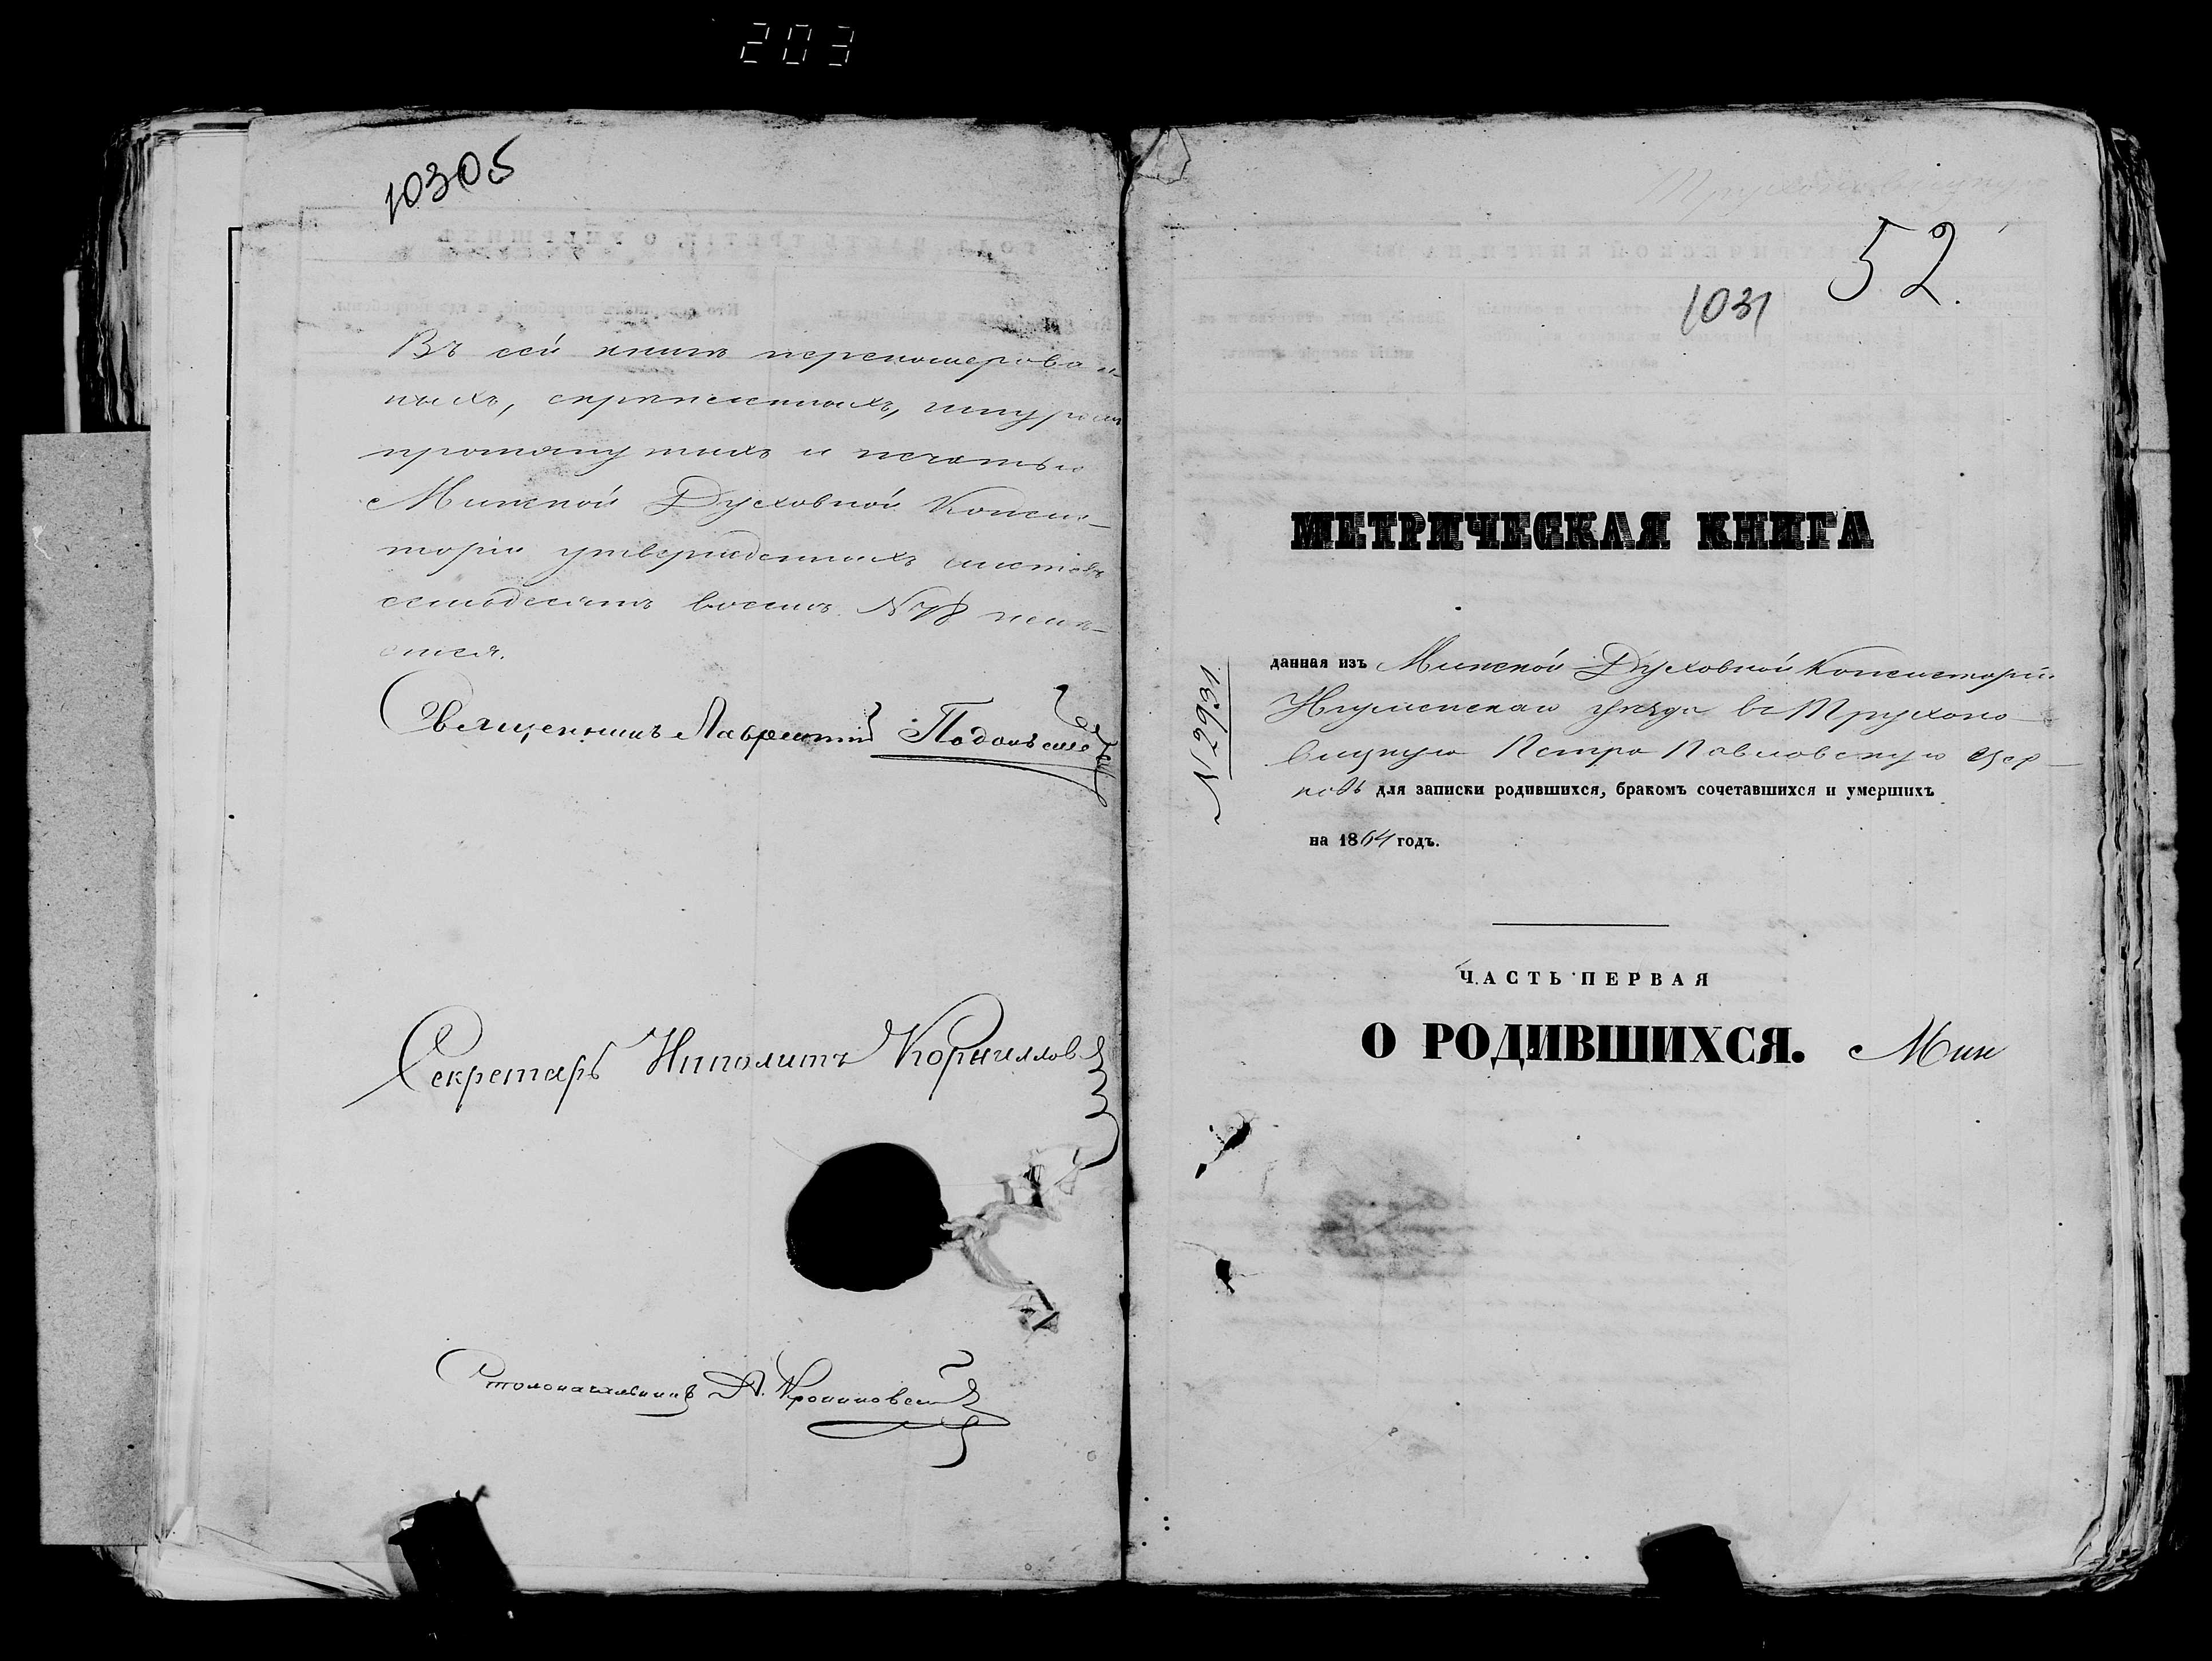 203
10305
Въ сей книгѣ перенумерован-
ныхъ, скрѣпленныхъ, шнуромъ
протянутыхъ и печатью
Минской Духовной Консис-
торіи утвержденныхъ листовъ
семьдесятъ восемь N 78 имѣ-
ется.
Священникъ Лаврентій
Секретарь Иполитъ Корниллов
Столоначальникъ
52.
1031
МЕТРИЧЕСКАЯ КНИГА
данная изъ Минской Духовной Консисторіи
Игуменскаго уѣзда въ Трухоно-
вицкую Петро Павловскую Цер-
ковь для записки родившихся, бракомъ сочетавшихся и умершихъ
на 1864 годъ.
ЧАСТЬ ПЕРВАЯ
О РОДИВШИХСЯ. Мин